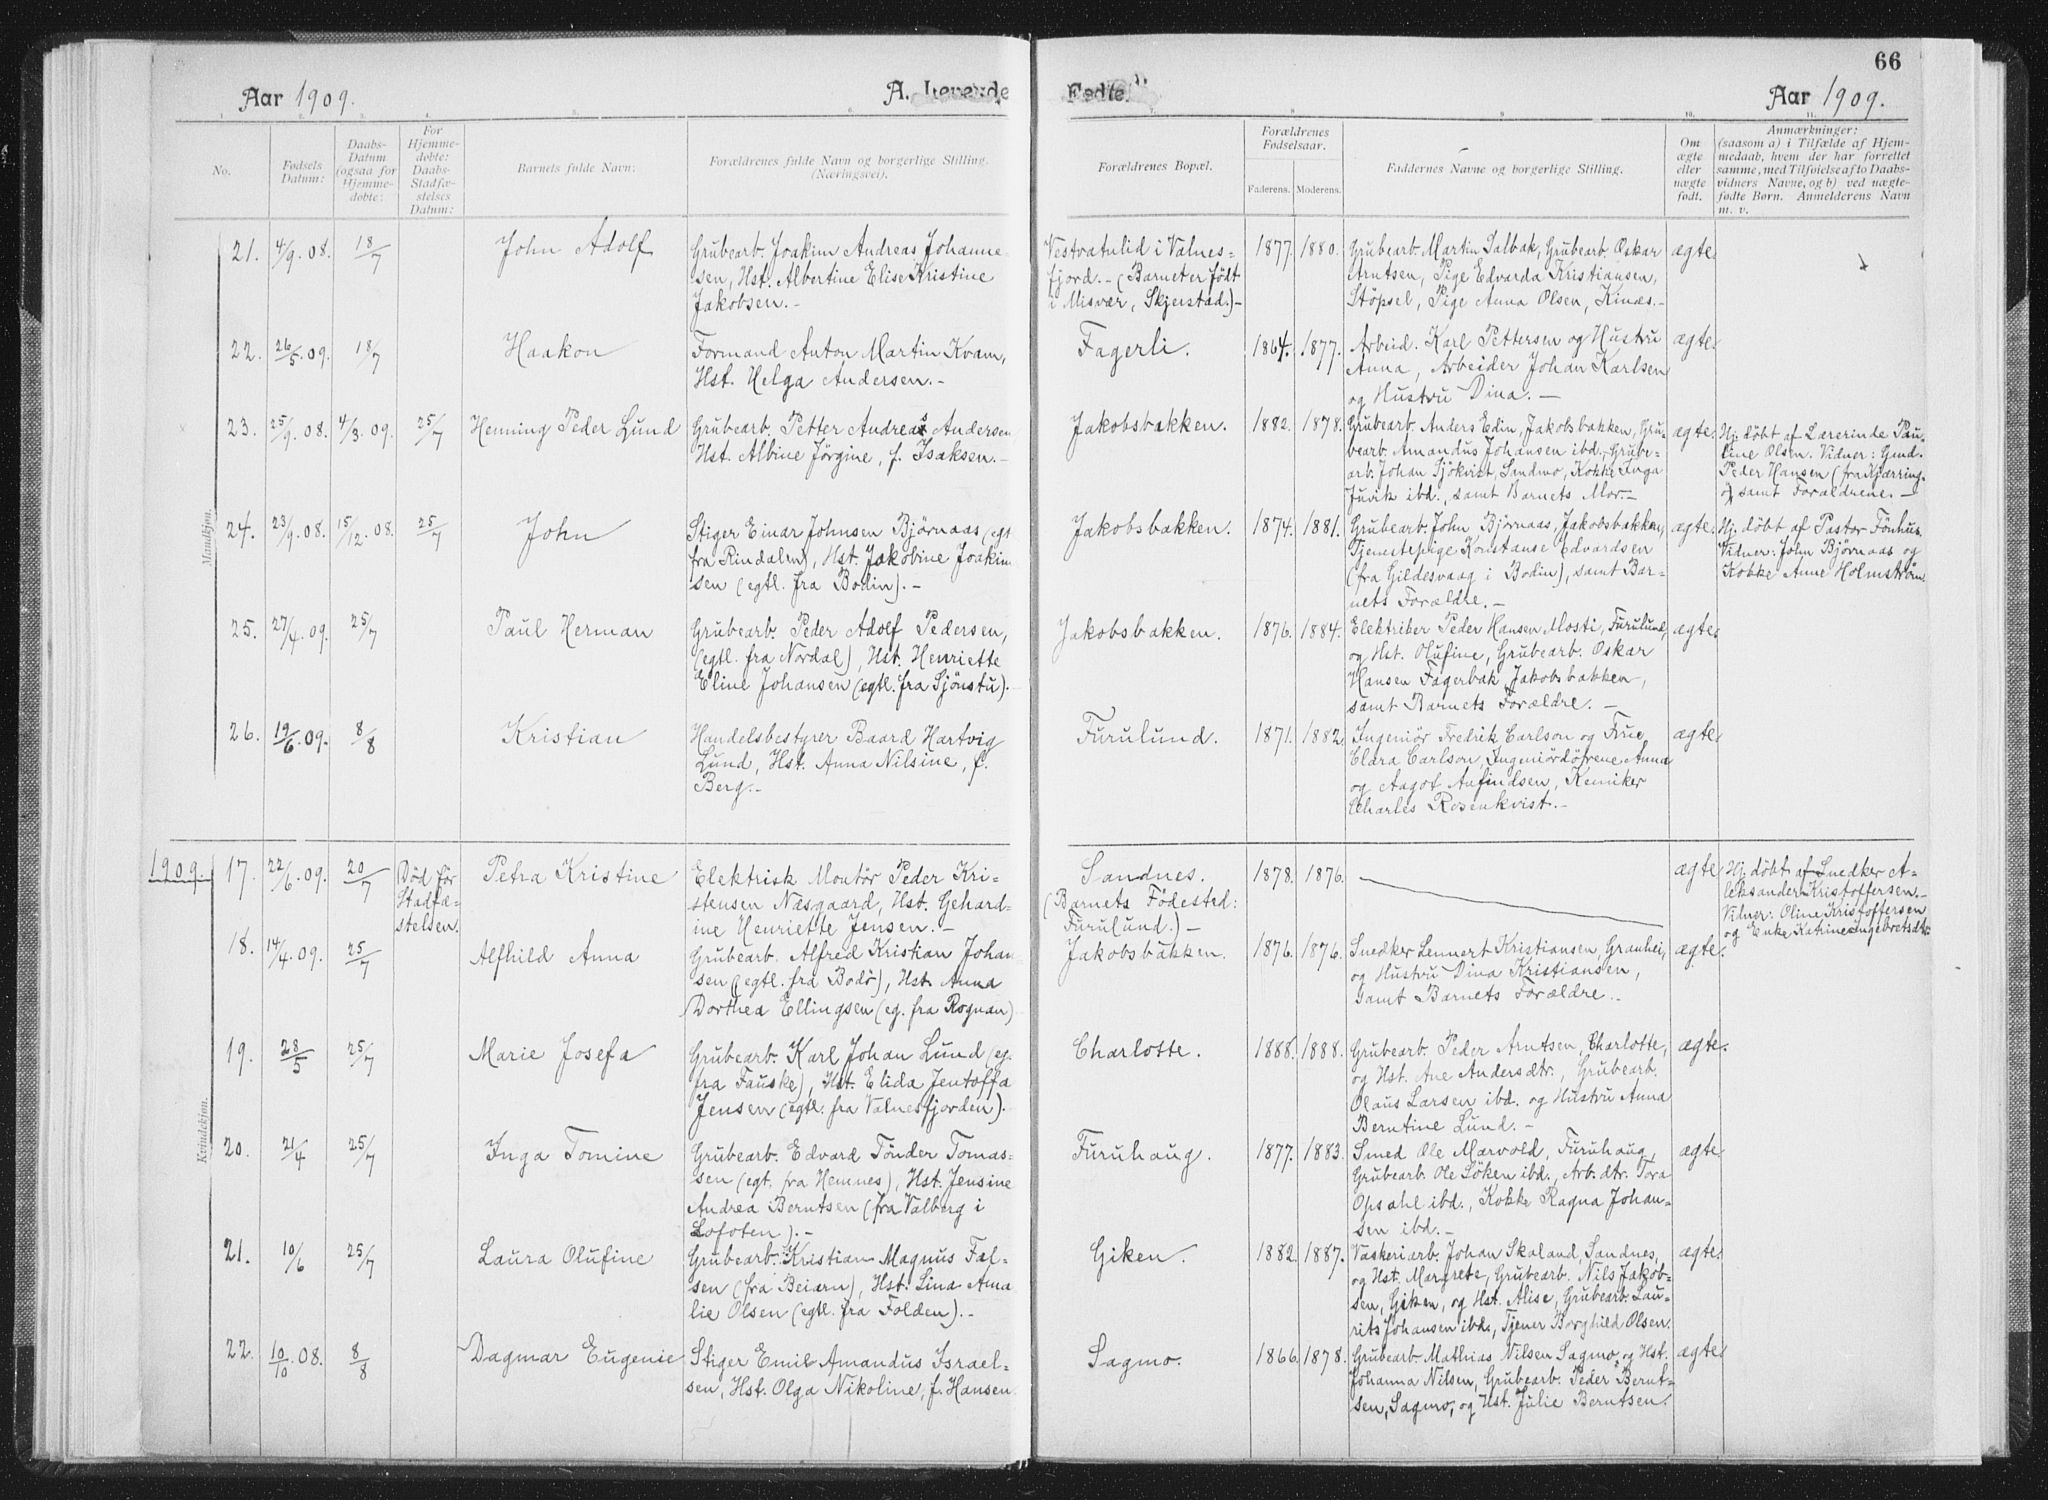 66
Aar 1909.
A. Levende
Fødte.
Aar 1909.
1. 2. 3. 4. 5. 6. 7. 8. 9. 10. 11.
No.
Fødsels
Datum:
Daabs-
Datum
(ogsaa for
Hjemme-
døbte:
For
Hjemme-
døbte:
Daabs-
Stadfæ-
stelses
Datum:
Barnets fulde Navn:
Forældrenes fulde Navn og borgerlige Stilling.
(Næringsvei).
Forældrenes Bopæl.
Forældrenes
Fødselsaar.
Faderens. Moderens.
Faddernes Navne og borgerlige Stilling.
Om
ægte
eller
nægte
født.
Anmærkninger:
(saasom a) i Tilfælde af Hjem-
medaab, hvem der har forrettet
samme, med Tilføielse af to Daabs-
vidners Navne, og b) ved nægte-
fødte Børn. Anmelderens Navn
m. v.
Mandkjøn.
21. 4/9. 08. 18/7
John Adolf
Grubearb. Joakim Andreas Johanne-
sen, Hst. Albertine Elise Kristine
Jakobsen.-
Vestvatnlid i Valnes-
fjord.- (Barnet er født
i Misvær, Skjerstad.)-
1877. 1880.
Grubearb. Martin Salbak, Grubearb. Oskar
Arntsen, Pige Edvarda Kristiansen,
Stöpsel, Pige Anna Olsen, Kinæs.-
ægte.
22. 26/5. 09. 18/7
Haakon
Formand Anton Martin Kvam,
Hst. Helga Andersen.-
Fagerli.
1864. 1877.
Arbeid. Karl Pettersen og Hustru
Anna, Arbeider Johan Karlsen
og Hustru Dina.-
ægte.
23. 25/9. 08. 4/3. 09. 25/7
Henning Peder Lund
Grubearb. Petter Andreas Andersen
Hst. Albine Jörgine, f. Isaksen.-
Jakobsbakken.
1882. 1878.
Grubearb. Anders Edin, Jakobsbakken, Gru-
bearb. Amandus Johansen ibd., Grube-
arb. Johan Sjökvist, Sandmo, Kokke Inga
Juvik ibd., samt Barnets Mor.-
ægte.
Hj. döbt af Lærerinde Pau-
line Olsen. Vidner: Gmd.
Peder Hansen (fra Kjærring-
ö) samt Forældrene.-
24. 23/9. 08. 15/12. 08. 25/7
John
Stiger Einar Johnsen Bjørnaas (egt
fra Rindalen), Hst. Jakobine Joakim
sen (egtl. fra Bodin).-
Jakobsbakken.
1874. 1881.
Grubearb. John Bjørnaas, Jakobsbakken,
Tjenestepige Konstanse Edvardsen
(fra Gildesvaag i Bodin), samt Bar-
nets Forældre.-
ægte.
Hj. döbt af Pastor Fönhus.
Vidner: John Bjørnaas og
Kokke Anne Holmström.
25. 27/4. 09. 25/7
Paul Herman
Grubearb. Peder Adolf Pedersen,
(egtl. fra Nordal), Hst. Henriette
Eline Johansen (egtl. fra Sjönstu).
Jakobsbakken.
1876. 1884.
Elektriker Peder Hansen Mosti, Furulund,
og Hst. Olufine, Grubearb. Oskar
Hansen Fagerbak, Jakobsbakken,
samt Barnets Forældre.-
ægte.
26. 19/6. 09. 8/8
Kristian
Handelsbestyrer Baard Hartvig
Lund, Hst. Anna Nilsine, f.
Berg.-
Furulund.
1871. 1882.
Ingeniör Fredrik Carlson og Frue
Clara Carlson, Ingeniördötrene Anna
og Aagot Anfindsen, Kemiker
Charles Rosenkvist.-
ægte.
Kvindekjøn.
1909. 17. 22/6. 09. 20/7
Död för
Stadfæ-
stelsen.
Petra Kristine
Elektrisk Montör Peder Kri-
stensen Næsgaard, Hst. Gehard-
ine Henriette Jensen.-
Sandnes.
(Barnets Födested:
Furulund.)-
1878. 1876.
ægte
Hj. döbt af Snedker A-
leksander Kristoffersen.-
Vidner: Oline Kristoffersen
og Enke Katrine Ingebretsdtr.
18. 14/4. 09. 25/7
Alfhild Anna
Grubearb. Alfred Kristian Johan-
sen (egtl. fra Bodö), Hst. Anna
Dorthea Ellingsen (eg. fra Rognan)
Jakobsbakken.
1876. 1876.
Snedker Lennert Kristiansen, Granhei,
og Hustru Dina Kristiansen,
samt Barnets Forældre.-
ægte.
19. 28/5 25/7
Marie Josefa
Grubearb. Karl Johan Lund (eg.
fra Fauske), Hst. Elida Jentoffa
Jensen (egtl. fra Valnesfjorden).
Charlotte.
1888. 1888.
Grubearb. Peder Arntsen, Charlotte,
og Hst. Ane Andersdtr., Grubearb.
Olaus Larsen ibd. og Hustru Anna
Berntine Lund.-
ægte.
20. 21/4 25/7
Inga Tomine
Grubearb. Edvard Tönder Tomas-
sen (egt. fra Hemnes), Hst. Jensine
Andrea Berntsen (fra Valberg i
Lofoten).-
Furuhaug.
1877. 1883.
Smed Ole Marvold, Furuhaug,
Grubearb. Ole Löken ibd., Arb.dtr. Tora
Opsahl ibd., Kokke Ragna Johan-
sen ibd.-
ægte.
21. 10/6 25/7
Laura Olufine
Grubearb. Kristian Magnus Fal-
sen (fra Beiarn), Hst. Lina Ama
lie Olsen (egtl. fra Folden).-
Giken.
1882. 1887.
Vaskeriarb. Johan Skaland, Sandnes,
og Hst. Margrete, Grubearb. Nils Jakob-
sen, Giken, og Hst. Alise, Grubearb. Lau-
rits Johansen ibd., Tjener Borghild Olsen.
ægte.
22. 10/10. 08. 8/8
Dagmar Eugenie
Stiger Emil Amandus Israel-
sen, Hst. Olga Nikoline, f. Hansen.
Sagmo.
1866. 1878.
Grubearb. Mathias Nilsen Sagmo, og Hst.
Johanna Nilsen, Grubearb. Peder Bernt-
sen, Sagmo, og Hst. Julie Berntsen.
ægte.